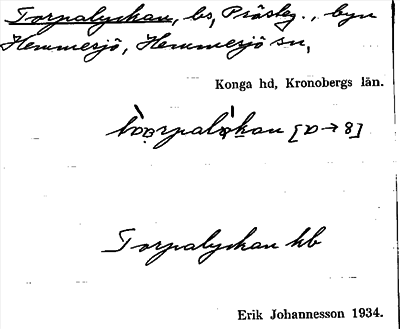 Torpalyckan, bs, Prästg., byn
Hemmesjö, Hemmesjö sn,
Konga hd, Kronobergs län.
Torpalyckan hb
Erik Johannesson 1934.